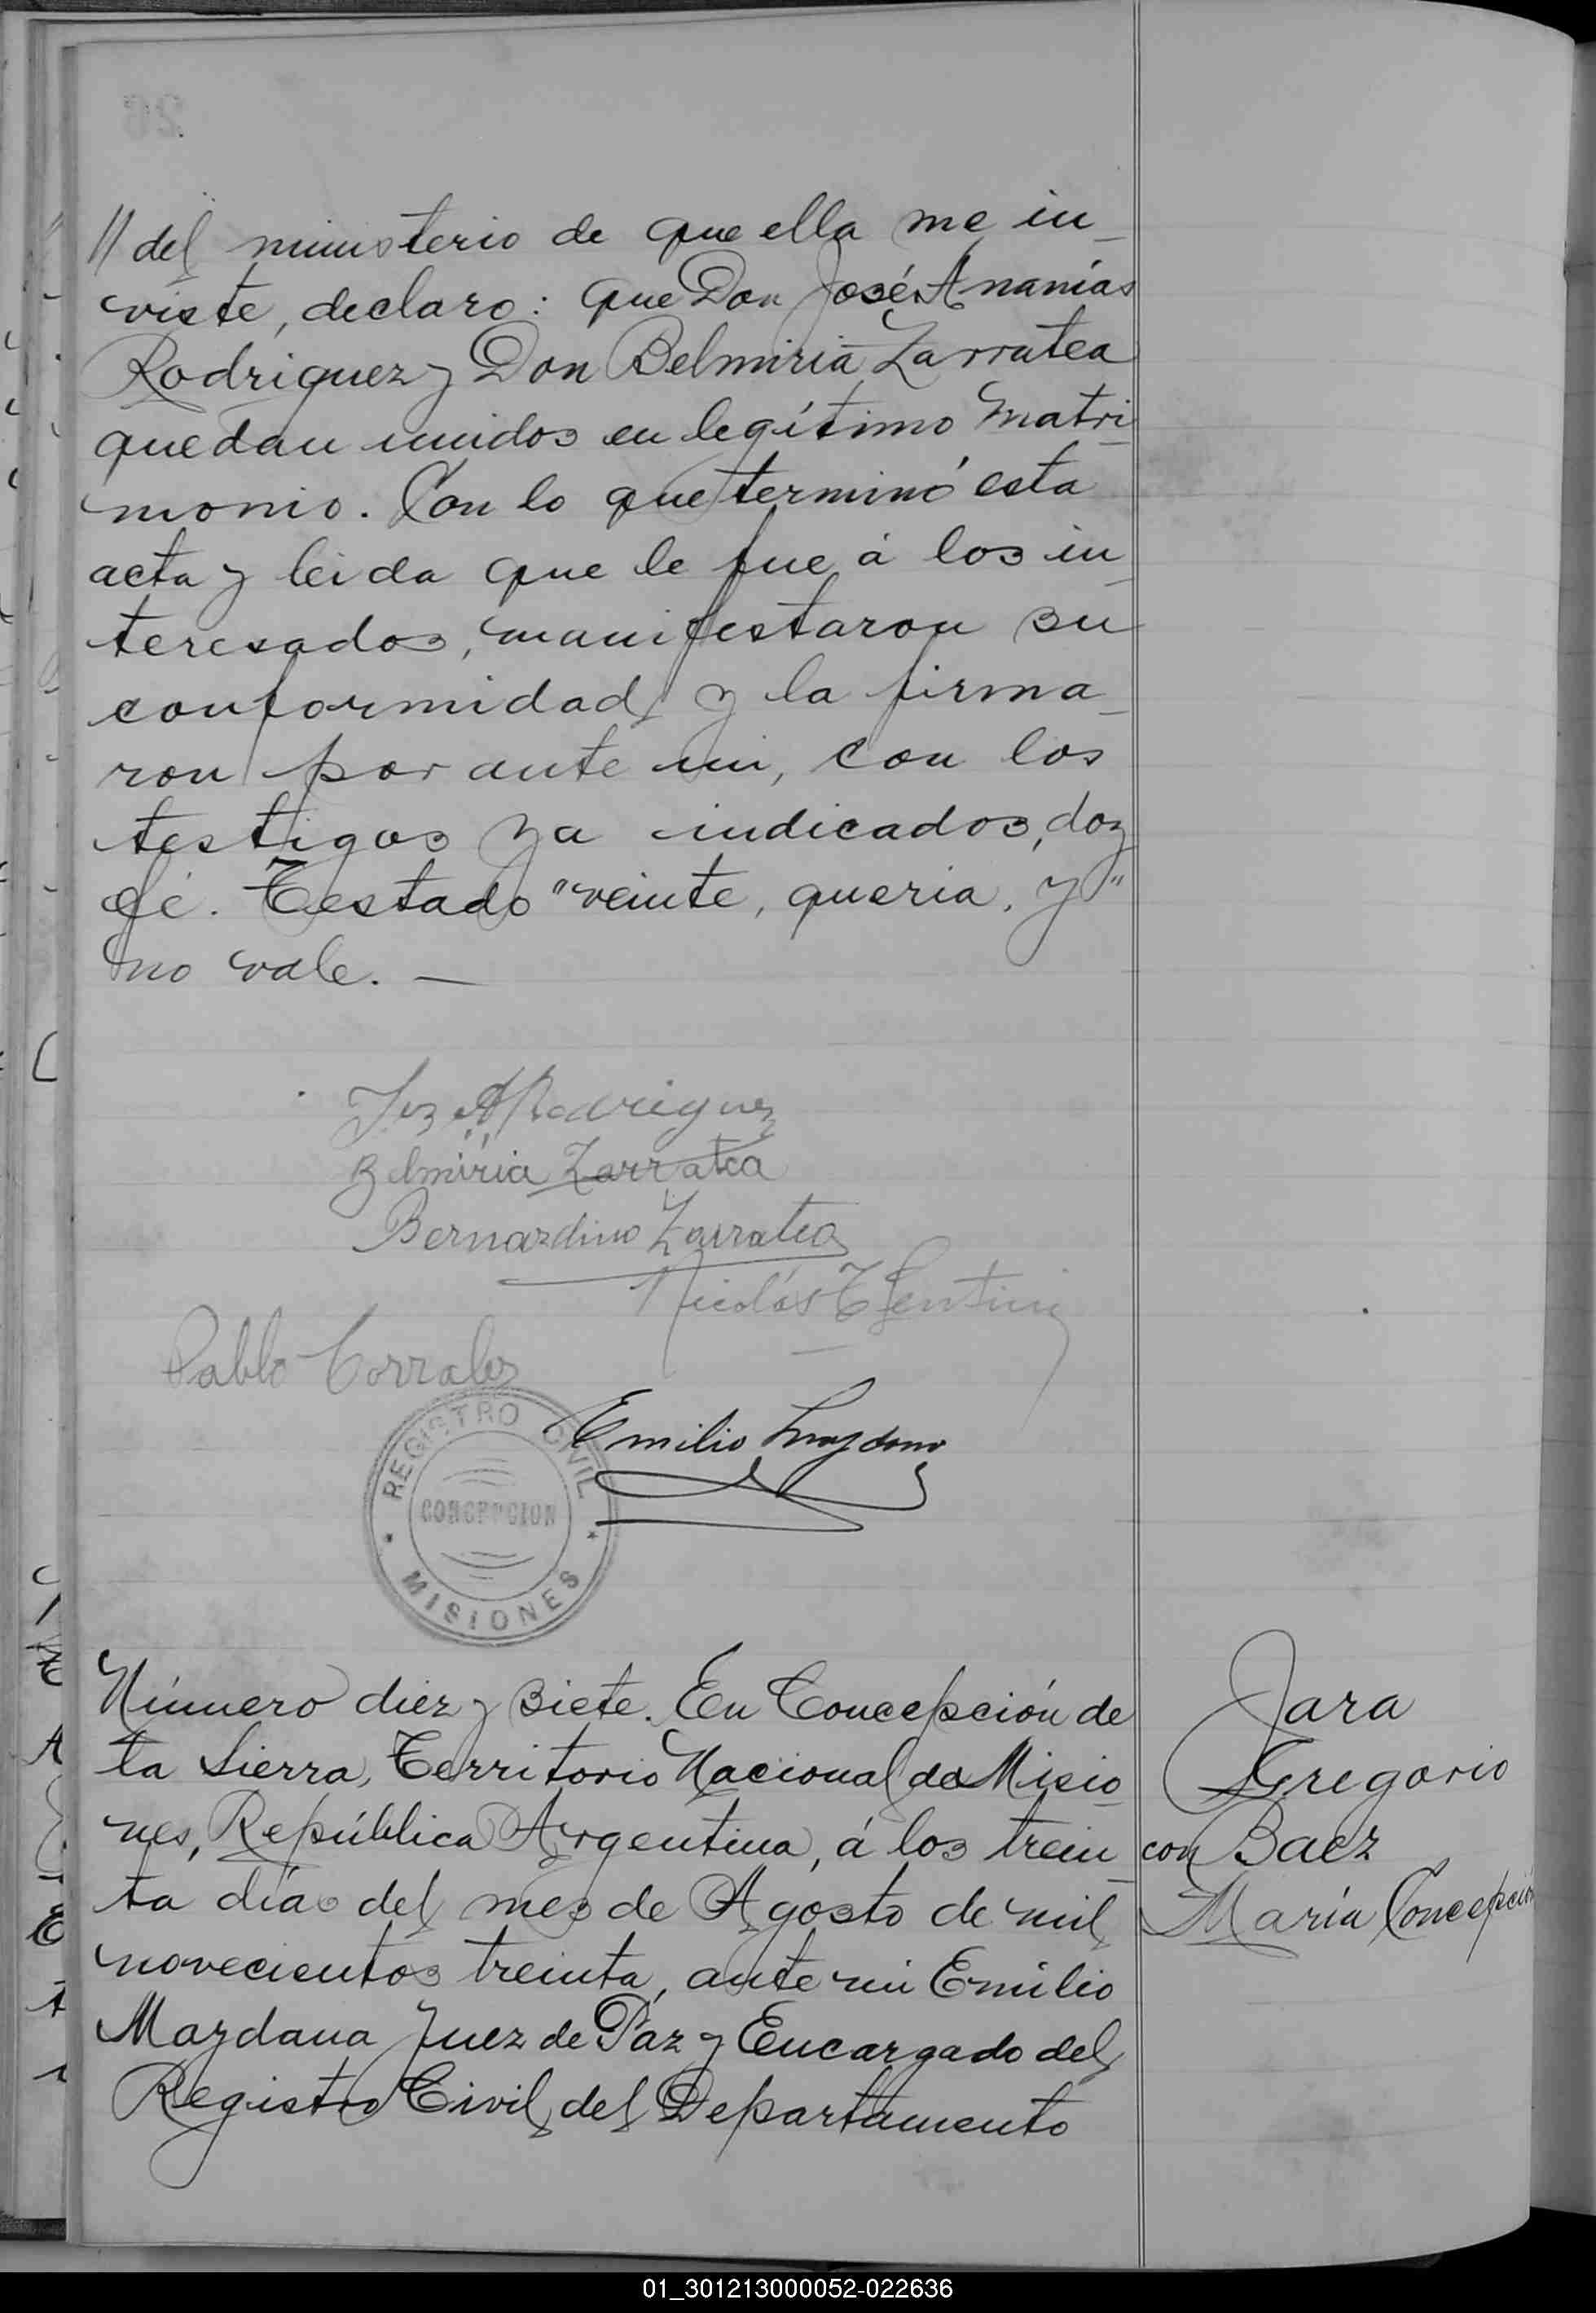 // del ministerio de que ella me in_
viste, declaro: que Don José Ananías
Rodriguez y Don Belmiria Zarratea
quedan unidos en legítimo Matri_
monio. Con lo que terminó esta
acta y leida que le fue á los in_
teresados, manifestaron su
conformidad y la firma_
ron por ante mi, con los
testigos ya indicados, doy
fé. Testado "veinte, queria, y"
no vale. —
Jose A Rodriguez
Belmiria Zarratea
Bernardino Zarratea
Nicolás T
Pablo Corrales
Emilio Maydana
REGISTRO CIVIL
CONCEPCION
MISIONES
Número diez y siete. En Concepción de
la Sierra, Territorio Nacional de Misio_
nes, República Argentina, á los trein_
ta días del mes de Agosto de mil
novecientos treinta, ante mi Emilio
Maydana Juez de Paz y Encargado del
Registro Civil del Departamento
Jara
Gregorio
con Baez
María Concepción
01_301213000052-022636